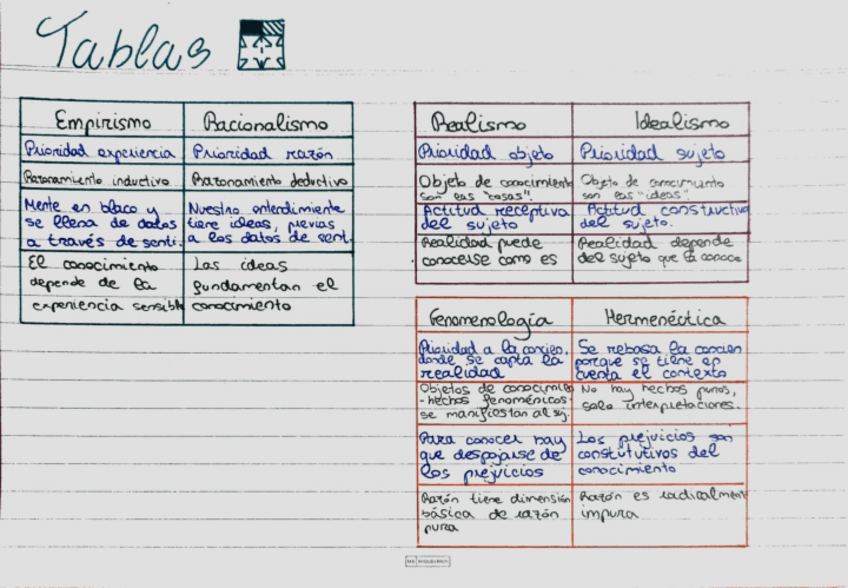 Tablas
Empirismo
Racionalismo
Prioridad experiencia
Prioridad razón
Razonamiento inductivo
Razonamiento deductivo
Mente en blaco y
se llena de datos
a través de senti.
Nuestro entendimiente
tiene ideas, previas
a los datos de sent.
El conocimiento
depende de la
experiencia sensible
Las ideas
fundamentan el
conocimiento
Realismo
Idealismo
Prioridad objeto
Prioridad sujeto
Objeto de conocimiento
son las "cosas".
Objeto de conocimiento
son las "ideas".
Actitud receptiva
del sujeto
Actitud constructiva
del sujeto.
Realidad puede
conocerse como es
Realidad depende
del sujeto que la conoce
Fenomenología
Hermenéctica
Prioridad a la concien.
donde se capta la
realidad
Se rebasa la concien
porque se tiene en
cuenta el contexto
Objetos de conocimie
- hechos fenoménicos -
se manifiestan al suj.
No hay hechos puros,
solo interpretaciones.
Para conocer hay
que despojarse de
los prejuicios
Los prejuicios son
constitutivos del
conocimiento
Razón tiene dimensión
básica de razón
pura
Razón es radicalment
impura